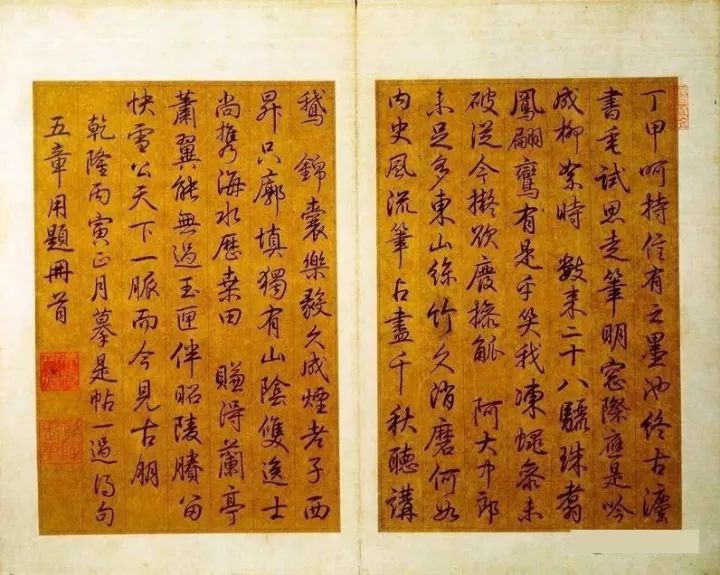 丁甲呵持信有之墨池終古灋
書垂試思走筆明窓際應是吟
成柳絮時 數來二十八驪珠翥
鳳翩鸞有是乎笑我凍蠅參未
破從今擬欲廢操觚 阿大中郎
未足多東山絲竹久消磨何如
内史風流筆占盡千秋聽講
鵝 錦囊樂毅久成煙老子西
昇只廓填獨有山陰雙逸士
尚攜海水歷桑田 賺得蘭亭
蕭翼能無過玉匣伴昭陵賸留
快雪公天下一脈而今見古朋
乾隆丙寅正月摹是帖一過得句
五章用題冊首